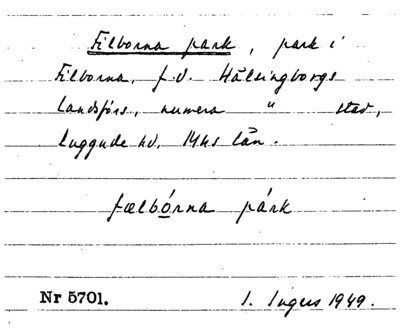 Filborna park, park i
Filborna, f.d. Hälsingborgs
landsförs., numera " stad,
Luggude hd, Mhs län.
fælbórna párk
Nr 5701. I. Ingers 1949.